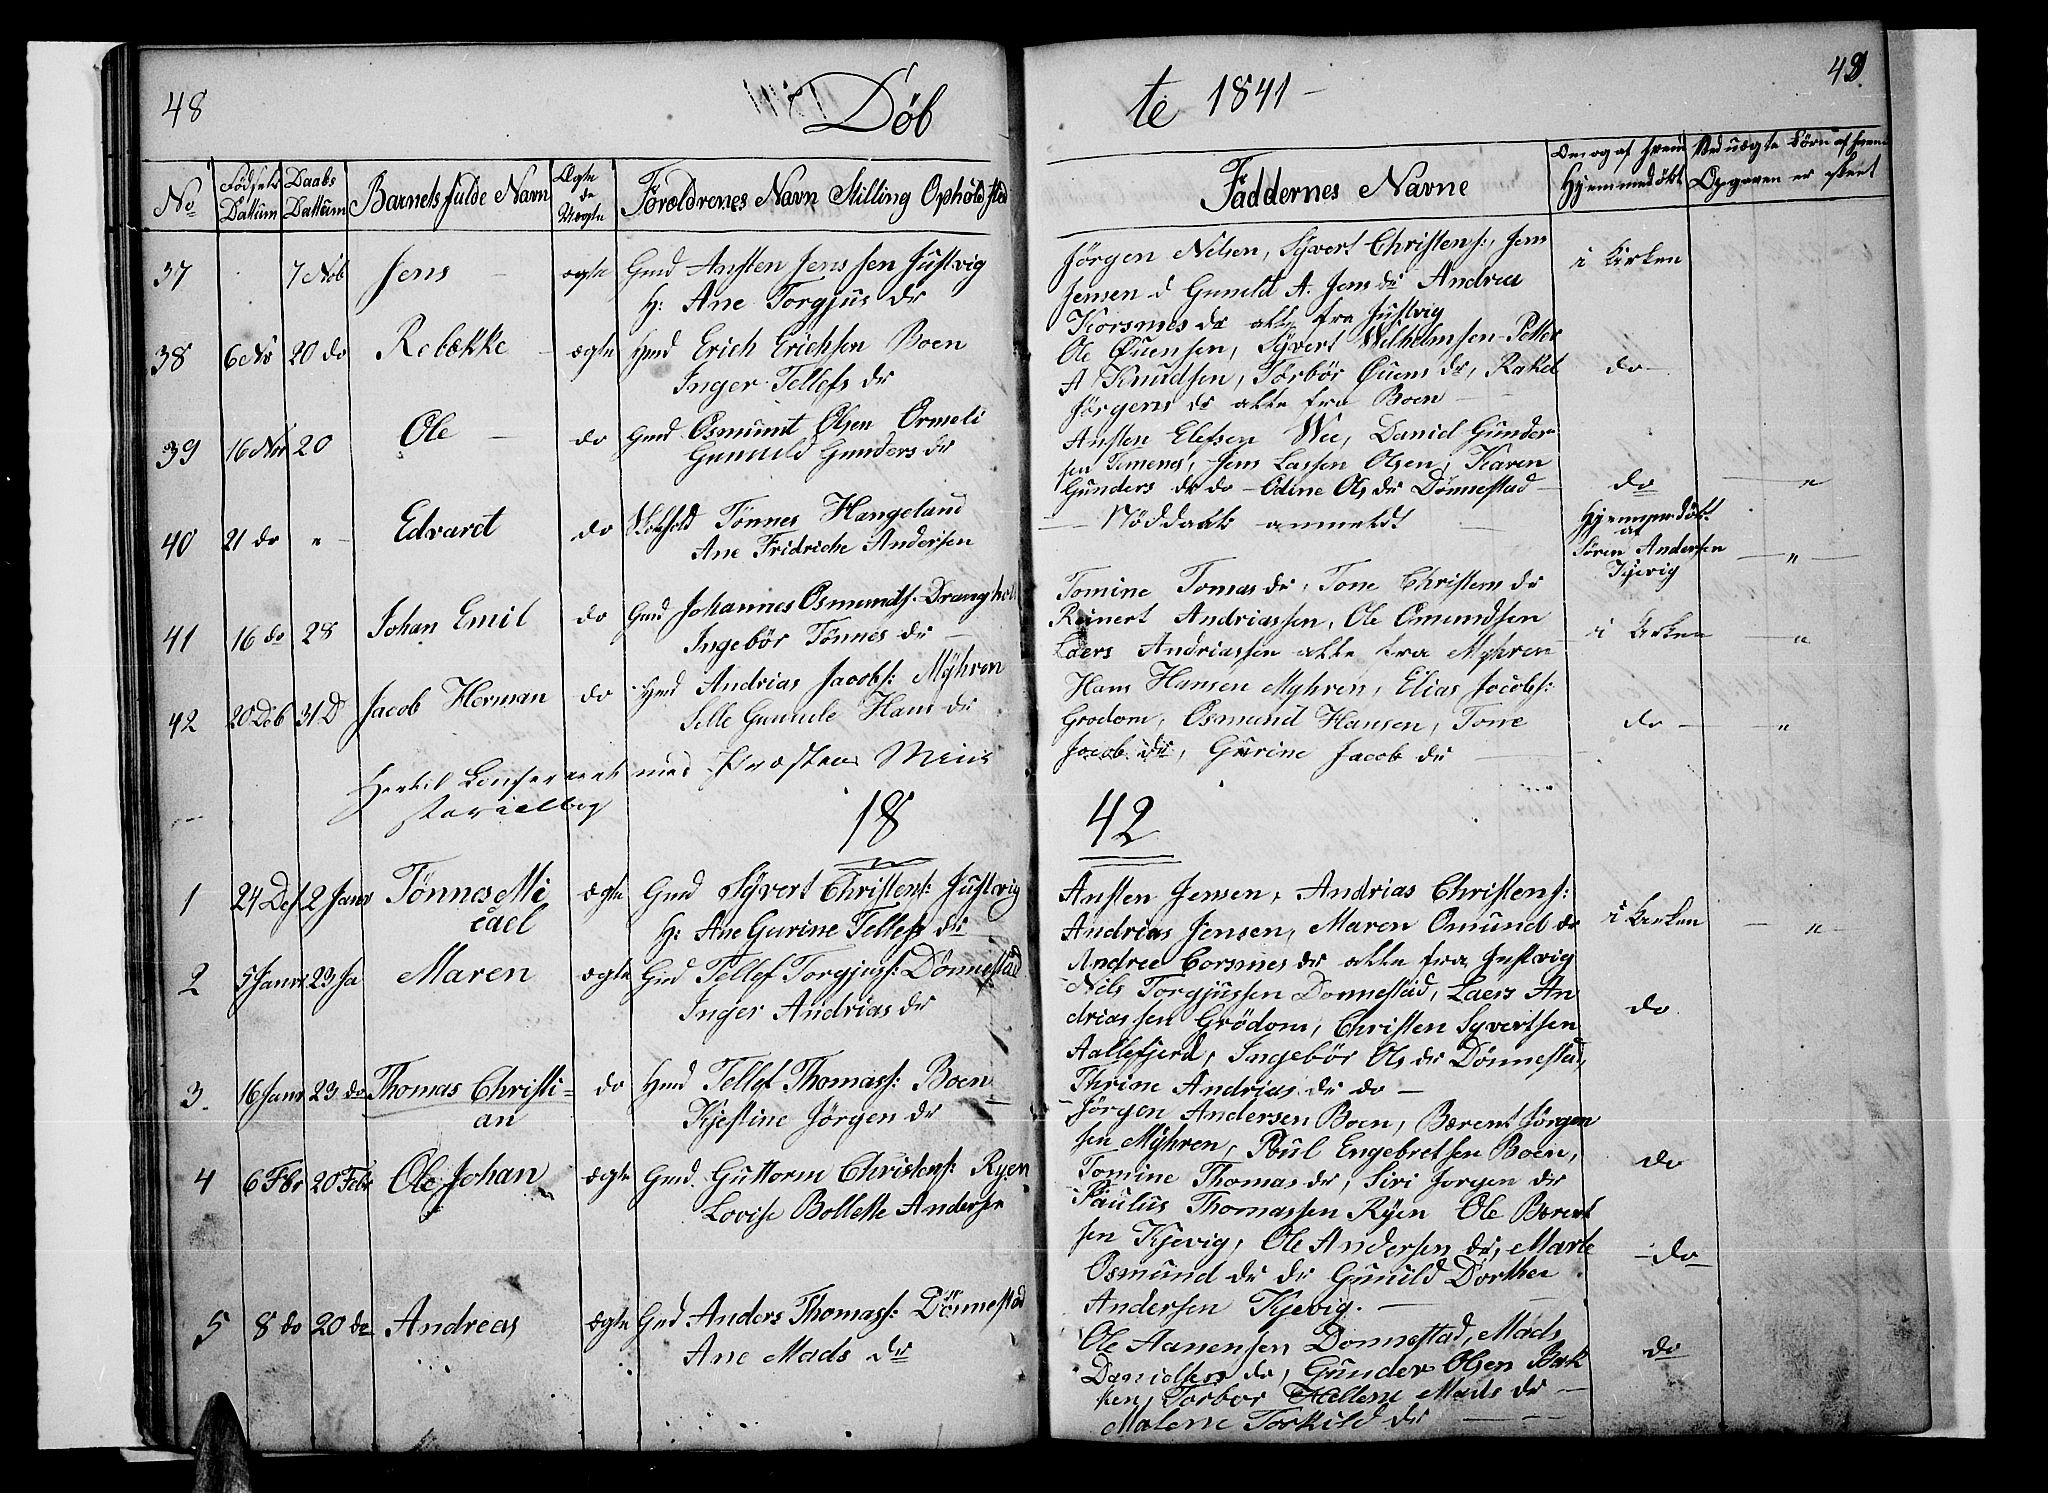 48
Döb
te 1841 -
49
No
Födsels Dattum
Daabs Dattum
Barnets fulde Navn
Ægte de Uægte
Foræeldrenes Navn Stilling Ophold sted
Faddernes Navne
Om og af hvem Hjemmedöbt
Ved uægte Börn af hvem Opgaven er skeet
37 7 Nob Jens - ægte Gmd Ansten Jens sen Justvig
H: Ane Torgjus dr
Jörgen Nilsen, Syvert Christens:, Jens
Jensen d Gunild A. Jens dr Andrea
Korsmes dr alle fra Justvig
i Kirken
38 6 No 20 do Rebække - ægte Hmd Erich Erichsen Boen
Inger Tellefs dr
Ole Ouensen, Syvert Wilhelmsen Petter
A Knudsen, Torbör Ouens dr, Rakel
Jörgens dr alle fra Boen
do -
39 16 Nov 20 Ole - do Gmd Osmunt Olsen Ormeli
Gunuld Gunders dr
Ansten Elefsen Wee, Daniel Gunder
sen Timenes, Jens Lassen Olsen, Karen
Gunders dr do - Odine Ols dr Dönnestad -
do - " -
40 21 do " Edvardt do Tönnes Hangeland
Ane Fridriche Andersen
- Nöddaab anmeldt -
Hjemmedöbt
af
Sören Andersen
Kjevig - " -
41 16 do 28 Johan Emil do Gmd Johannes Osmunds: Drangholt
Ingebör Tönnes dr -
Tomine Tomas dr, Tone Christens dr
Reinert Andriassen, Ole Omundsen
Laers Andriassen alle fra Myhren
i Kirken - " -
42 20 Deb 31 D Jacob Herman do Hmd Andrias Jacobs: Myhren
Selle Gunule Hans dr
Hans Hansen Myhren, Elias Jacobs:
Grodom, Osmund Hansen, Tone
Jacob dr, Gurine Jacob dr
do - "
med Præstens
18 42
1 24 Des 2 Janr Tönnes Mi
cael
ægte Gmd Syvert Christens: Justvig
H: Ane Gurine Tellefs dr
Ansten Jensen, Andrias Christens:
Andrias Jensen, Maren Omund dr
Andree Corsmes dr alle fra Justvig
i Kirken - " -
2 5 Janr 23 Ja Maren ægte Gmd Tellef Torgjuss: Dönnestad
Inger Andrias dr
Nils Torgjussen Donnestad, Laers An
driassen Grödom, Christen Syvertsen
Aallefjerd, Ingebör Ols dr Dönnestad,
Thrine Andrias dr do -
do
3. 16 Janr 23 do Thomas Christi=
an
do Hmd Tellef Thomass: Boen
Kjestine Jörgen dr
Jörgen Andersen Boen, Bærent Jörgen
sen Myhren, Poul Engebretsen Boen,
Tomine Thomas dr, Siri Jorgen dr
do
4 6 Fbr 20 Febr Ole Johan ægte Gmd. Guttorm Christens: Ryen
Lovise Bollette Andersen
Paulus Thomassen Ryen Ole Bærent
sen Kjevig, Ole Andersen do, Marte
Osmund dr do Gunild Dorthea
Andersen Kjevig. -
- do
5 8 do 20 do Andreas ægte Gmd Anders Thomass: Dönnestad
Ane Mads dr
Ole Aanensen Donnestad, Mads
Danielsen do, Gunder Olsen Bak
ken, Torbor Hellene Mads dr -
Malene Torkild dr -
do